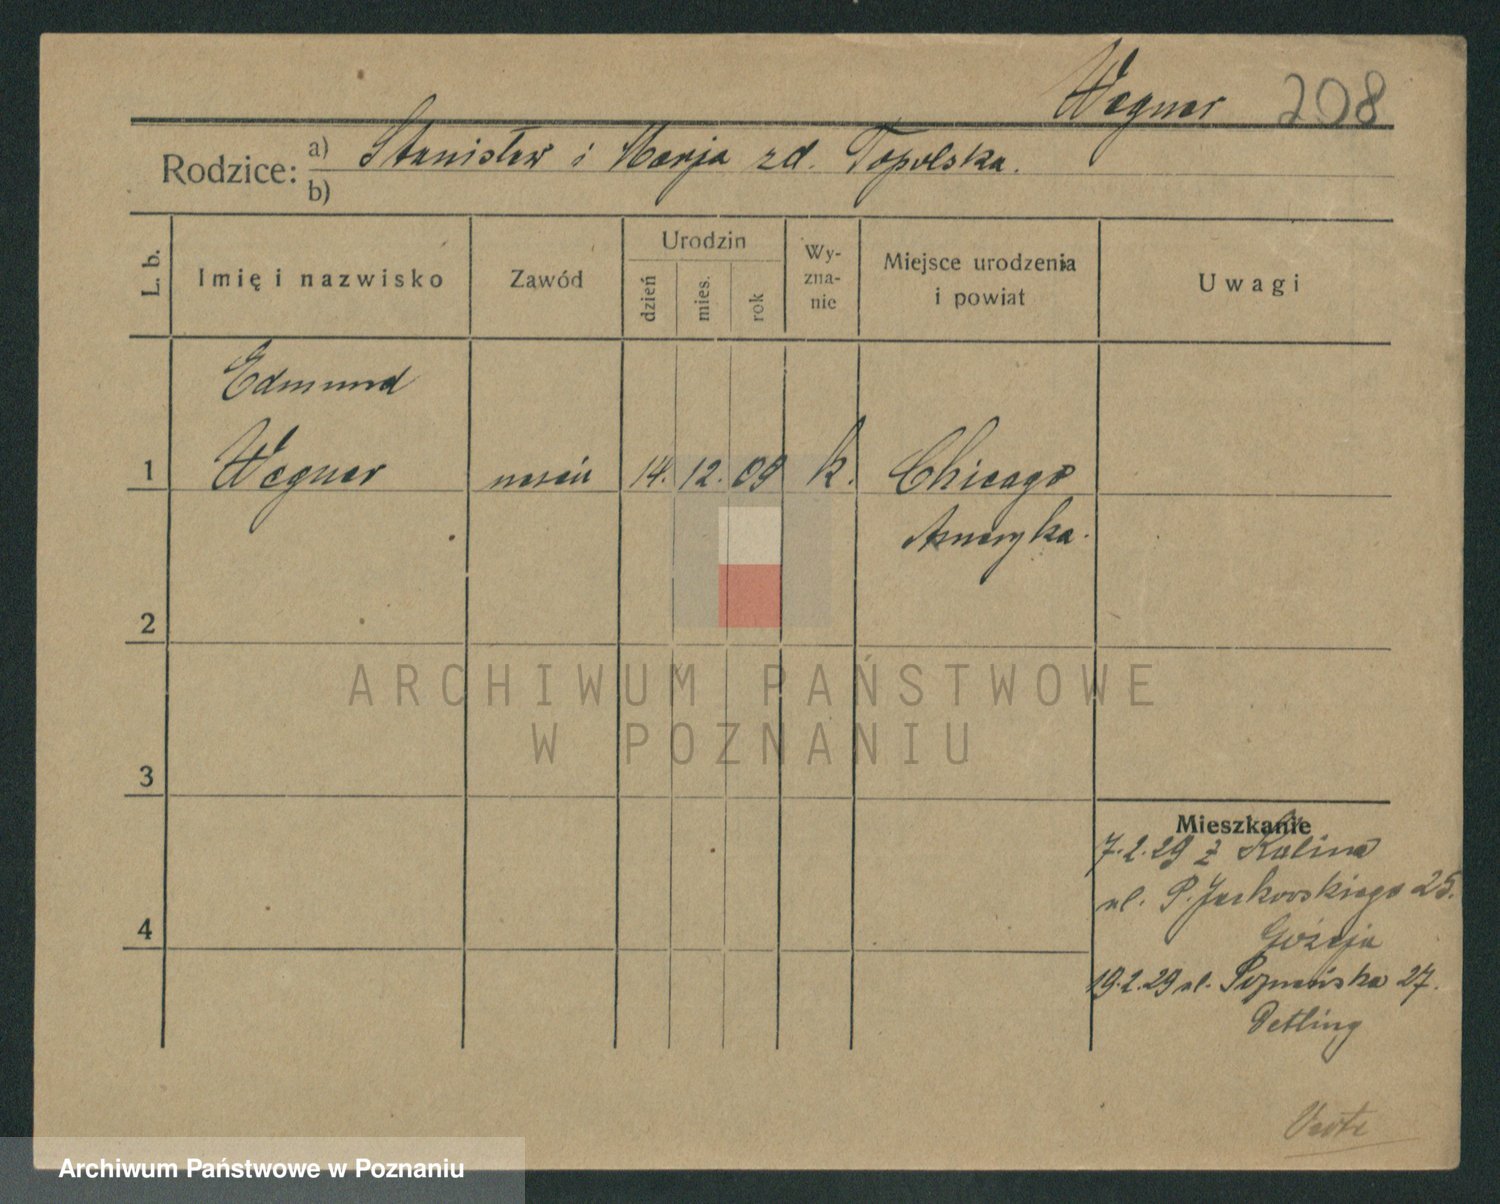 Wegner 208
Rodzice: a) Stanisław i Marja zd. Topolska.
b)
L. b.
Imię i nazwisko
Zawód
Urodzin
dzień
mies.
rok
Wy-
zna-
nie
Miejsce urodzenia
i powiat
Uwagi
Edmund
1 Wegner uczeń 14. 12. 09 k. Chicago
Ameryka.
2
ARCHIWUM PAŃSTWOWE
W POZNANIU
3
Mieszkanie
7.2.29 z Kalina
ul. P. Jackowskiego 25.
4
19.2.29 ul. Poznańska 27.
Detling
Archiwum Państwowe w Poznaniu